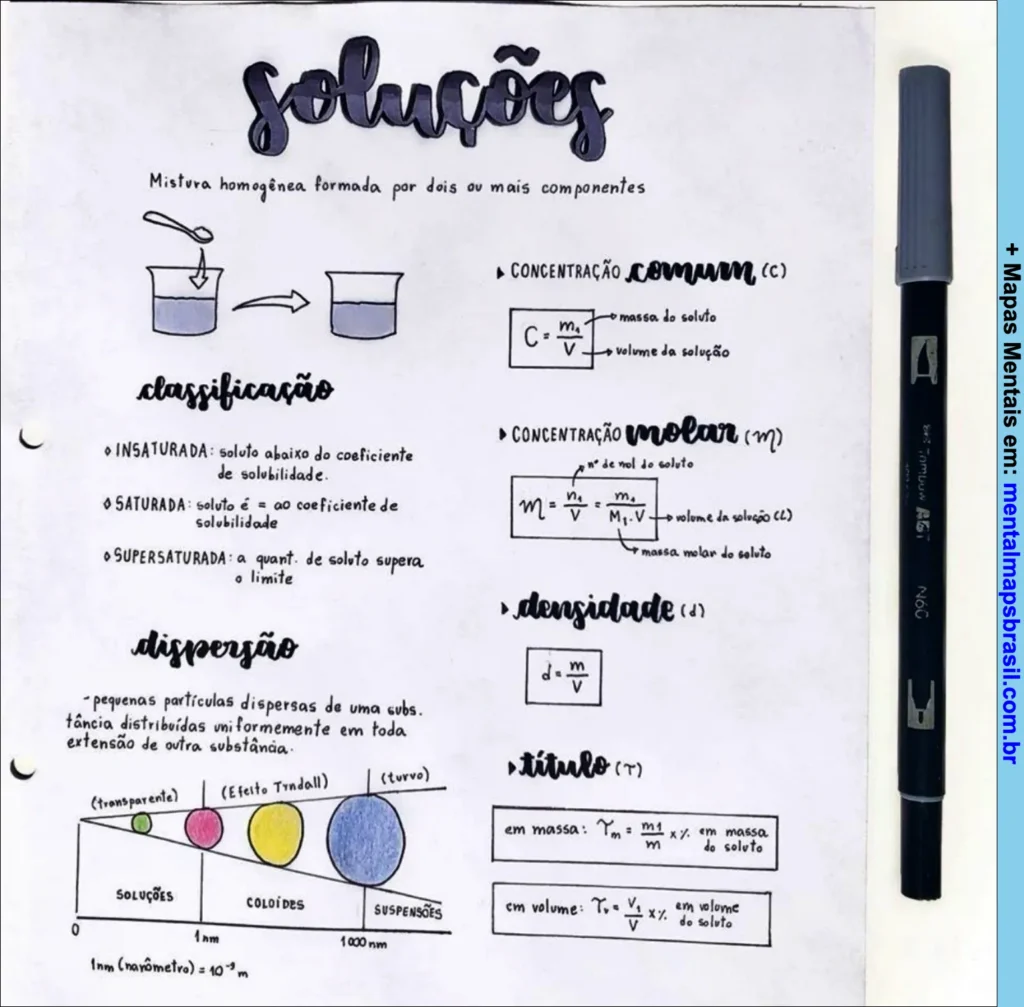 soluções
Mistura homogênea formada por dois ou mais componentes
classificação
INSATURADA: soluto abaixo do coeficiente
de solubilidade.
SATURADA: soluto é = ao coeficiente de
solubilidade
SUPERSATURADA: a quant. de soluto supera
o limite
dispersão
- pequenas partículas dispersas de uma subs.
tância distribuídas uniformemente em toda
extensão de outra substância.
(transparente) (Efeito Tyndall) (turvo)
SOLUÇÕES COLOÍDES SUSPENSÕES
0 1nm 1000nm
1nm (nanômetro) = 10⁻⁹ m
CONCENTRAÇÃO comum (C)
C = m₁/V
massa do soluto
volume da solução
CONCENTRAÇÃO molar (M)
nº de mol do soluto
M = n₁/V = m₁/M₁.V
volume da solução (L)
massa molar do soluto
densidade (d)
d = m/V
título (T)
em massa: Tm = m1/m x % em massa
do soluto
em volume: Tv = V₁/V x % em volume
do soluto
Tombow ABT
N60
+ Mapas Mentais em: mentalmapsbrasil.com.br